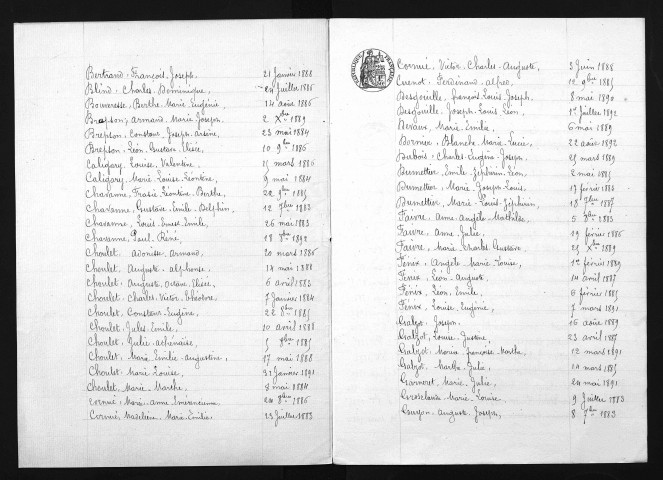 Bertrand, François, Joseph, 21 Janvier 1888
Blind, Charles, Dominique, 20 Juillet 1886
Bouveresse, Berthe, Marie, Eugénie, 14 Août 1886
Brepson, Armand, Marie, Joseph, 2 Xbre 1889
Brepson, Constant, Joseph, Arsène, 23 mai 1884
Brepson, Léon, Gustave, Elisée, 10 9bre 1886
Caligary, Louise, Valentine, 15 mars 1886
Caligary, Marie, Louise, Léontine, 8 mai 1884
Chavanne, Léontine, Berthe, 22 9bre 1885
Chavanne, Gustave, Emile, Delphin, 12 7bre 1883
Chavanne, Louis, Ernest, Emile, 26 mai 1883
Chavanne, Paul, Réné, 18 8bre 1892
Choulet, Armand, 20 mars 1886
Choulet, Auguste, Alphonse, 14 mai 1888
Choulet, Auguste, Octave, Elisée, 6 avril 1883
Choulet, Charles, Victor, Théodore, 7 Janvier 1884
Choulet, Constant, Eugène, 22 8bre 1885
Choulet, Jules, Emile, 10 avril 1888
Choulet, Julie, Athénaïse, 5 1885
Choulet, Marie, Emilie, Augustine, 17 mai 1888
Choulet, Marie, Louise, 31 Janvier 1891
Choulet, Marie, Marthe, 8 mai 1884
Cornué, Marie, Anne, 20 8bre 1886
Cornué, Marie, Emilie, 23 Juillet 1883
Cornué, Victor, Charles, Auguste, 3 Juin 1888
Cuenot, Ferdinand, Alfred, 12 9bre 1885
Desgouille, François, Louis, Joseph, 8 mai 1890
Desgouille, Joseph, Louis, Léon, 1er Juillet 1892
Devaux, Marie, Emilie, 6 mai 1889
Dornier, Blanche, Marie, Lucie, 22 août 1892
Dubois, Charles, Eugène, Joseph, 25 mars 1889
Dumettier, Emile, Zéphirin, Léon, 2 mai 1885
Dumettier, Marie, Joseph, Louis, 17 février 1886
Dumettier, Marie, Louis, Zéphirin, 18 7bre 1887
Faivre, Anne, Angèle, Mathilde, 5 1883
Faivre, Anne, Julie, 19 février 1886
Faivre, Marie, Charles, Gustave, 25 Xbre 1889
Fénix, Angèle, Marie, Louise, 1er février 1889
Fénix, Léon, Auguste, 14 avril 1887
Fénix, Léon, Emile, 6 février 1885
Fénix, Louise, Eugénie, 7 mars 1891
Galzot, Joseph, 16 août 1889
Galzot, Louise, Justine, 23 avril 1887
Galzot, Maria, Françoise, Marthe, 12 mars 1891
Galzot, Marthe, Julie, 10 mars 1885
Garneret, Marie, Julie, 20 mai 1891
Marie, Louise, 9 Juillet 1883
Guyon, Auguste, Joseph, 8 7bre 1883